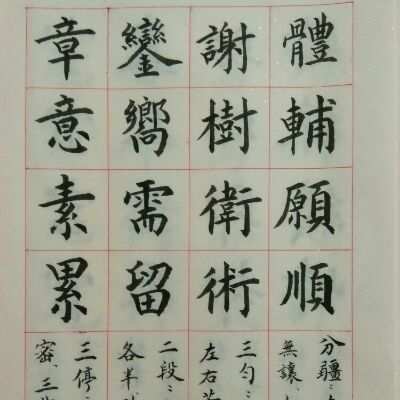 體輔願順
謝樹衛術
鑾嚮需留
章意素累
分疆：
無讓、
三勻：
左右
二段：
各半
三停：
審、三